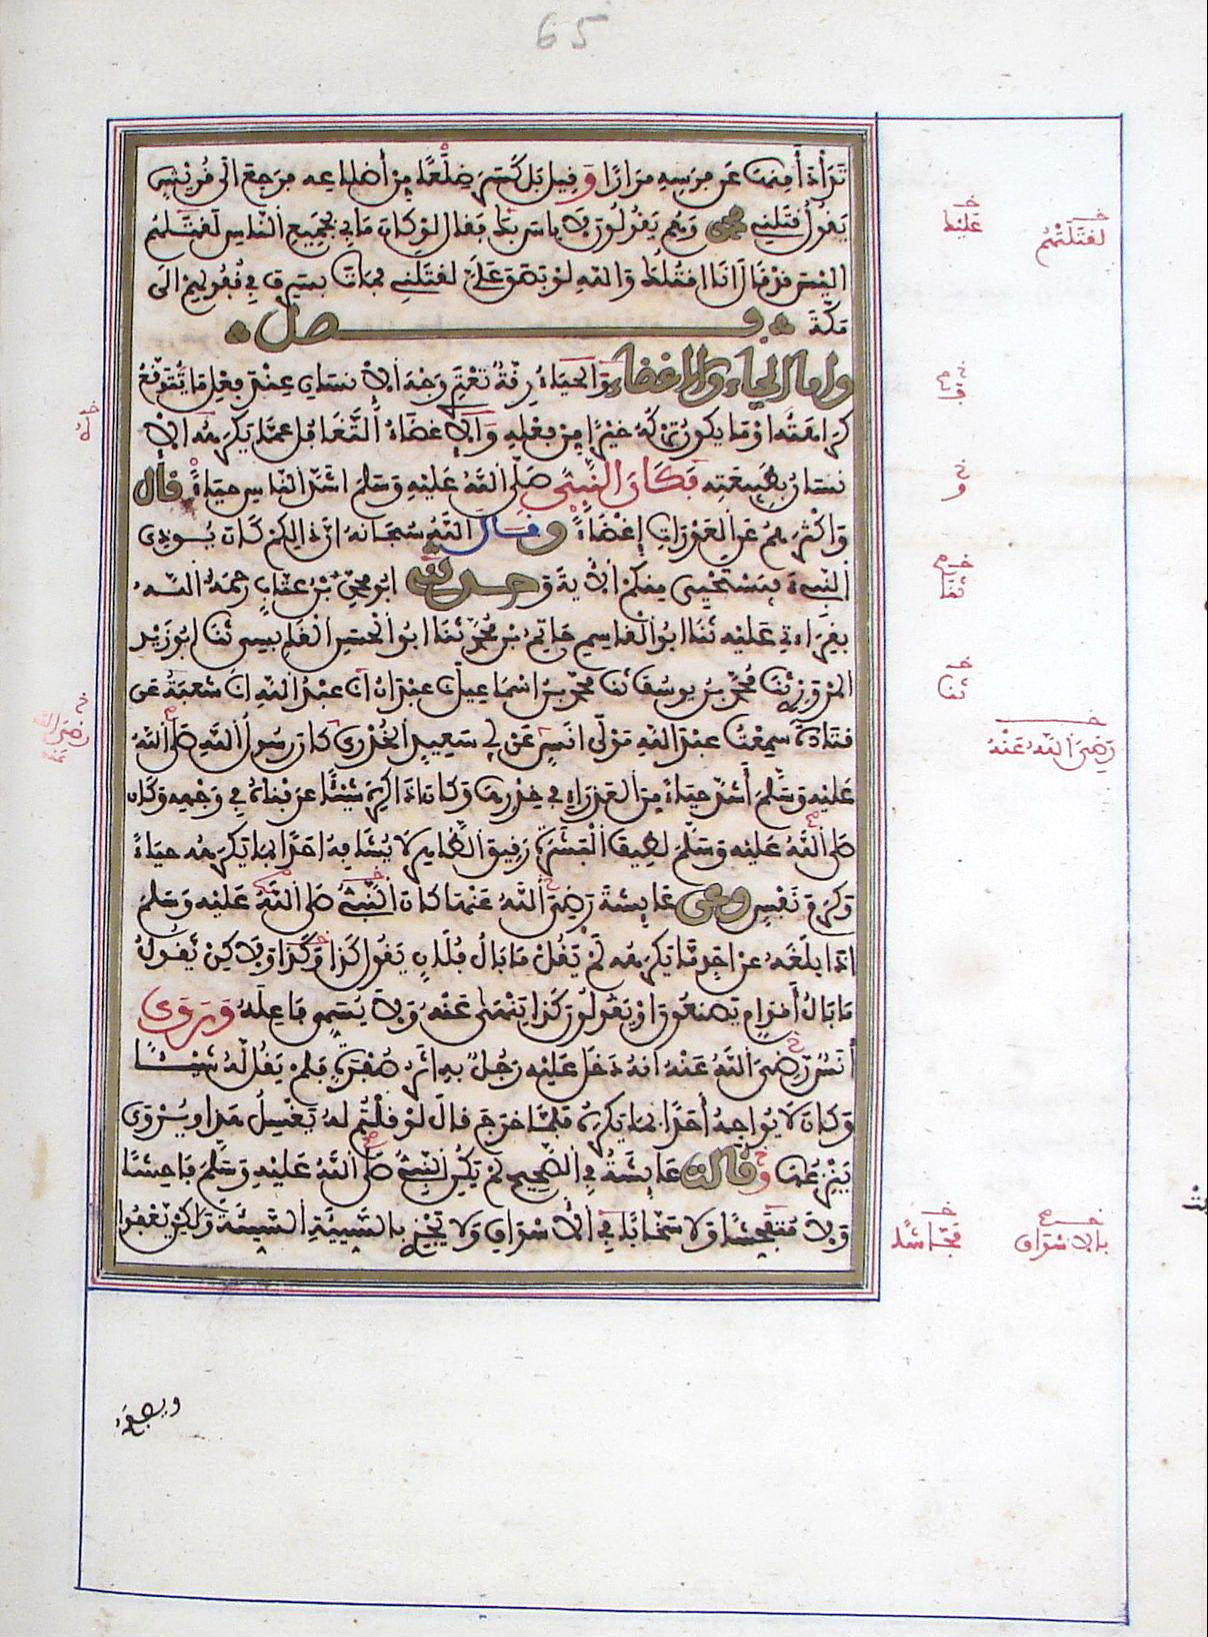 65
تَدَأْدَأَ مِنْهَا عَن فَرَسِهِ مِرَارًا وَقِيلَ بَلْ كَسَرَ ضِلَعًا مِنْ أَضْلَاعِهِ فَرَجَعَ الَى قُرَيْشٍ
يَقُولُ قَتَلَنِي مُحَمَّد وَهُمْ يَقُولُونَ لَا بَاسَ بِكَ فَقَالَ لَوْ كَانَ مَا بِي بِجَمِيعِ النَّاسِ لَقَتَلَهُمْ
الَيْسَ قَدْ قَالَ انَا اقْتُلُكَ وَاللهِ لَوْ بَصَقَ عَلَيَّ لَقَتَلَنِي فَمَاتَ بِسَرِفَ فِي قُفُولِهِمْ الَى
مَكَّةَ فصل
واما الحياء والاغضاء فَالحَيَاءُ رِقَّةٌ تَعْتَرِي وَجْهَ الْإنسَانِ عِنْدَ فِعْلِ مَا يُتَوَقَّعُ
كَرَاهَتُهُ اوْ مَا يَكُونُ تَرْكُهُ خَيْرًا مِنْ فِعْلِهِ وَالْإغْضَاءُ التَّغَافُلُ عَمَّا يَكْرَهُهُ الْإ
نسَانُ بِطَبِيعَتِهِ فَكَانَ النَّبِيُّ صَلَّى اللهُ عَلَيْهِ وَسَلَّمَ اشَدَّ النَّاسِ حَيَاءً قال
وَاكْثَرَهُمْ عَنِ الْعَوْرَاتِ إغْضَاءً وقال اللهُ سُبْحَانَهُ انَّ ذَالِكُمْ كَانَ يُوذِي
النَّبِيءَ فَيَسْتَحْيِي مِنكُمُ الْآيَةَ وحدثنا ابُو مُحَمَّد بْنُ عَتَّابٍ رَحِمَهُ اللهُ
بِقِرَاءَتِي عَلَيْهِ ثَنَا ابُو الْقَاسِمِ حَاتِمُ بْنُ مُحَمَّد ثَنَا ابُو الْحَسَنِ الْقَابِسِي ثَنَا ابُو زَيْدٍ
الْمَرْوَزِي ثَنَا مُحَمَّدُ بْنُ يُوسُفَ ثَنَا مُحَمَّدُ بْنُ اسْمَاعِيلَ عَبْدَانُ انَا عَبْدُ اللهِ انَا شُعْبَةُ عَن
قَتَادَةَ سَمِعْتُ عَبْدَ اللهِ مَوْلَى انَسٍ عَنْ ابِي سَعِيدٍ الْخُدْرِي كَانَ رَسُولُ اللهِ صَلَّى اللهُ
عَلَيْهِ وَسَلَّمَ أَشَدَّ حَيَاءً مِنَ الْعَذْرَاءِ فِي خِدْرِهَا وَكَانَ اذَا كَرِهَ شَيْئًا عَرَفْنَاهُ فِي وَجْهِهِ وَكَانَ
صَلَّى اللهُ عَلَيْهِ وَسَلَّمَ لَطِيفَ الْبَشَرَةِ رَقِيقَ الظَّاهِرِ لَا يُشَافِهُ احَدًا بِمَا يَكْرَهُهُ حَيَاءً
وَكَرَمَ نَفْسٍ وعن عَائِشَةَ رَضِيَ اللهُ عَنْهَا كَانَ النَّبِيُّ صَلَّى اللهُ عَلَيْهِ وَسَلَّمَ
اذَا بَلَغَهُ عَنْ احَدٍ مَّا يَكْرَهُهُ لَمْ يَقُلْ مَا بَالُ فُلَانٍ يَقُولُ كَذَا وَكَذَا وَلَاكِنْ يَقُولُ
مَا بَالُ أَقْوَامٍ يَصْنَعُونَ اوْ يَقُولُونَ كَذَا يَنْهَى عَنْهُ وَلَا يُسَمِّي فَاعِلَهُ وَرَوَى
أَنَسٌ رَضِيَ اللهُ عَنْهُ انَّهُ دَخَلَ عَلَيْهِ رَجُلٌ بِهِ اثَرُ صُفْرَةٍ فَلَمْ يَقُلْ لَهُ شَيْئًا
وَكَانَ لَا يُوَاجِهُ أَحَدًا بِمَا يَكْرَهُ فَلَمَّا خَرَجَ قَالَ لَوْ قُلْتُمْ لَهُ يَغْسِلُ هَذَا وَيُرْوَى
يَنْزِعُهَا وقالت عَائِشَةُ فِي الصَّحِيحِ لَمْ يَكُنِ النَّبِيُّ صَلَّى اللهُ عَلَيْهِ وَسَلَّمَ فَاحِشًا
وَلَا مُتَفَحِّشًا وَلَا سَخَّابًا فِي الْأسْوَاقِ وَلَا يَجْزِي بِالسَّيِّئَةِ السَّيِّئَةَ وَلَكِنْ يَعْفُوا
لَقَتَلَتْهُمْ
عَلَيْكَ
ثَنَا
ثَنَا
رَضِيَ اللهُ عَنْهُ
بِالْاسْوَاقِ
فَحَّاشًا
ويصفح